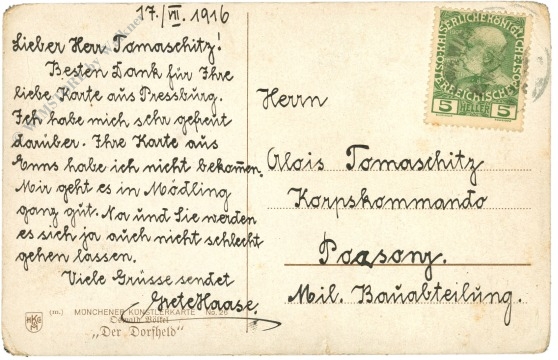 17./VII. 1916
Lieber Herr Tomaschitz!
Besten Dank für Ihre
liebe Karte aus Pressburg.
Ich habe mich sehr gefreut
darüber. Ihre Karte aus
Enns habe ich nicht bekommen.
Mir geht es in Mödling
ganz gut. Na und Sie werden
es sich ja auch nicht schlecht
gehen lassen.
Viele Grüsse sendet
Grete Haase.
Herrn
Alois Tomaschitz
Korpskommando
Poszony.
Mil. Bauabteilung.
5 HELLER 5
(m.) MÜNCHENER KÜNSTLERKARTE No. 26
"Der Dorfheld"